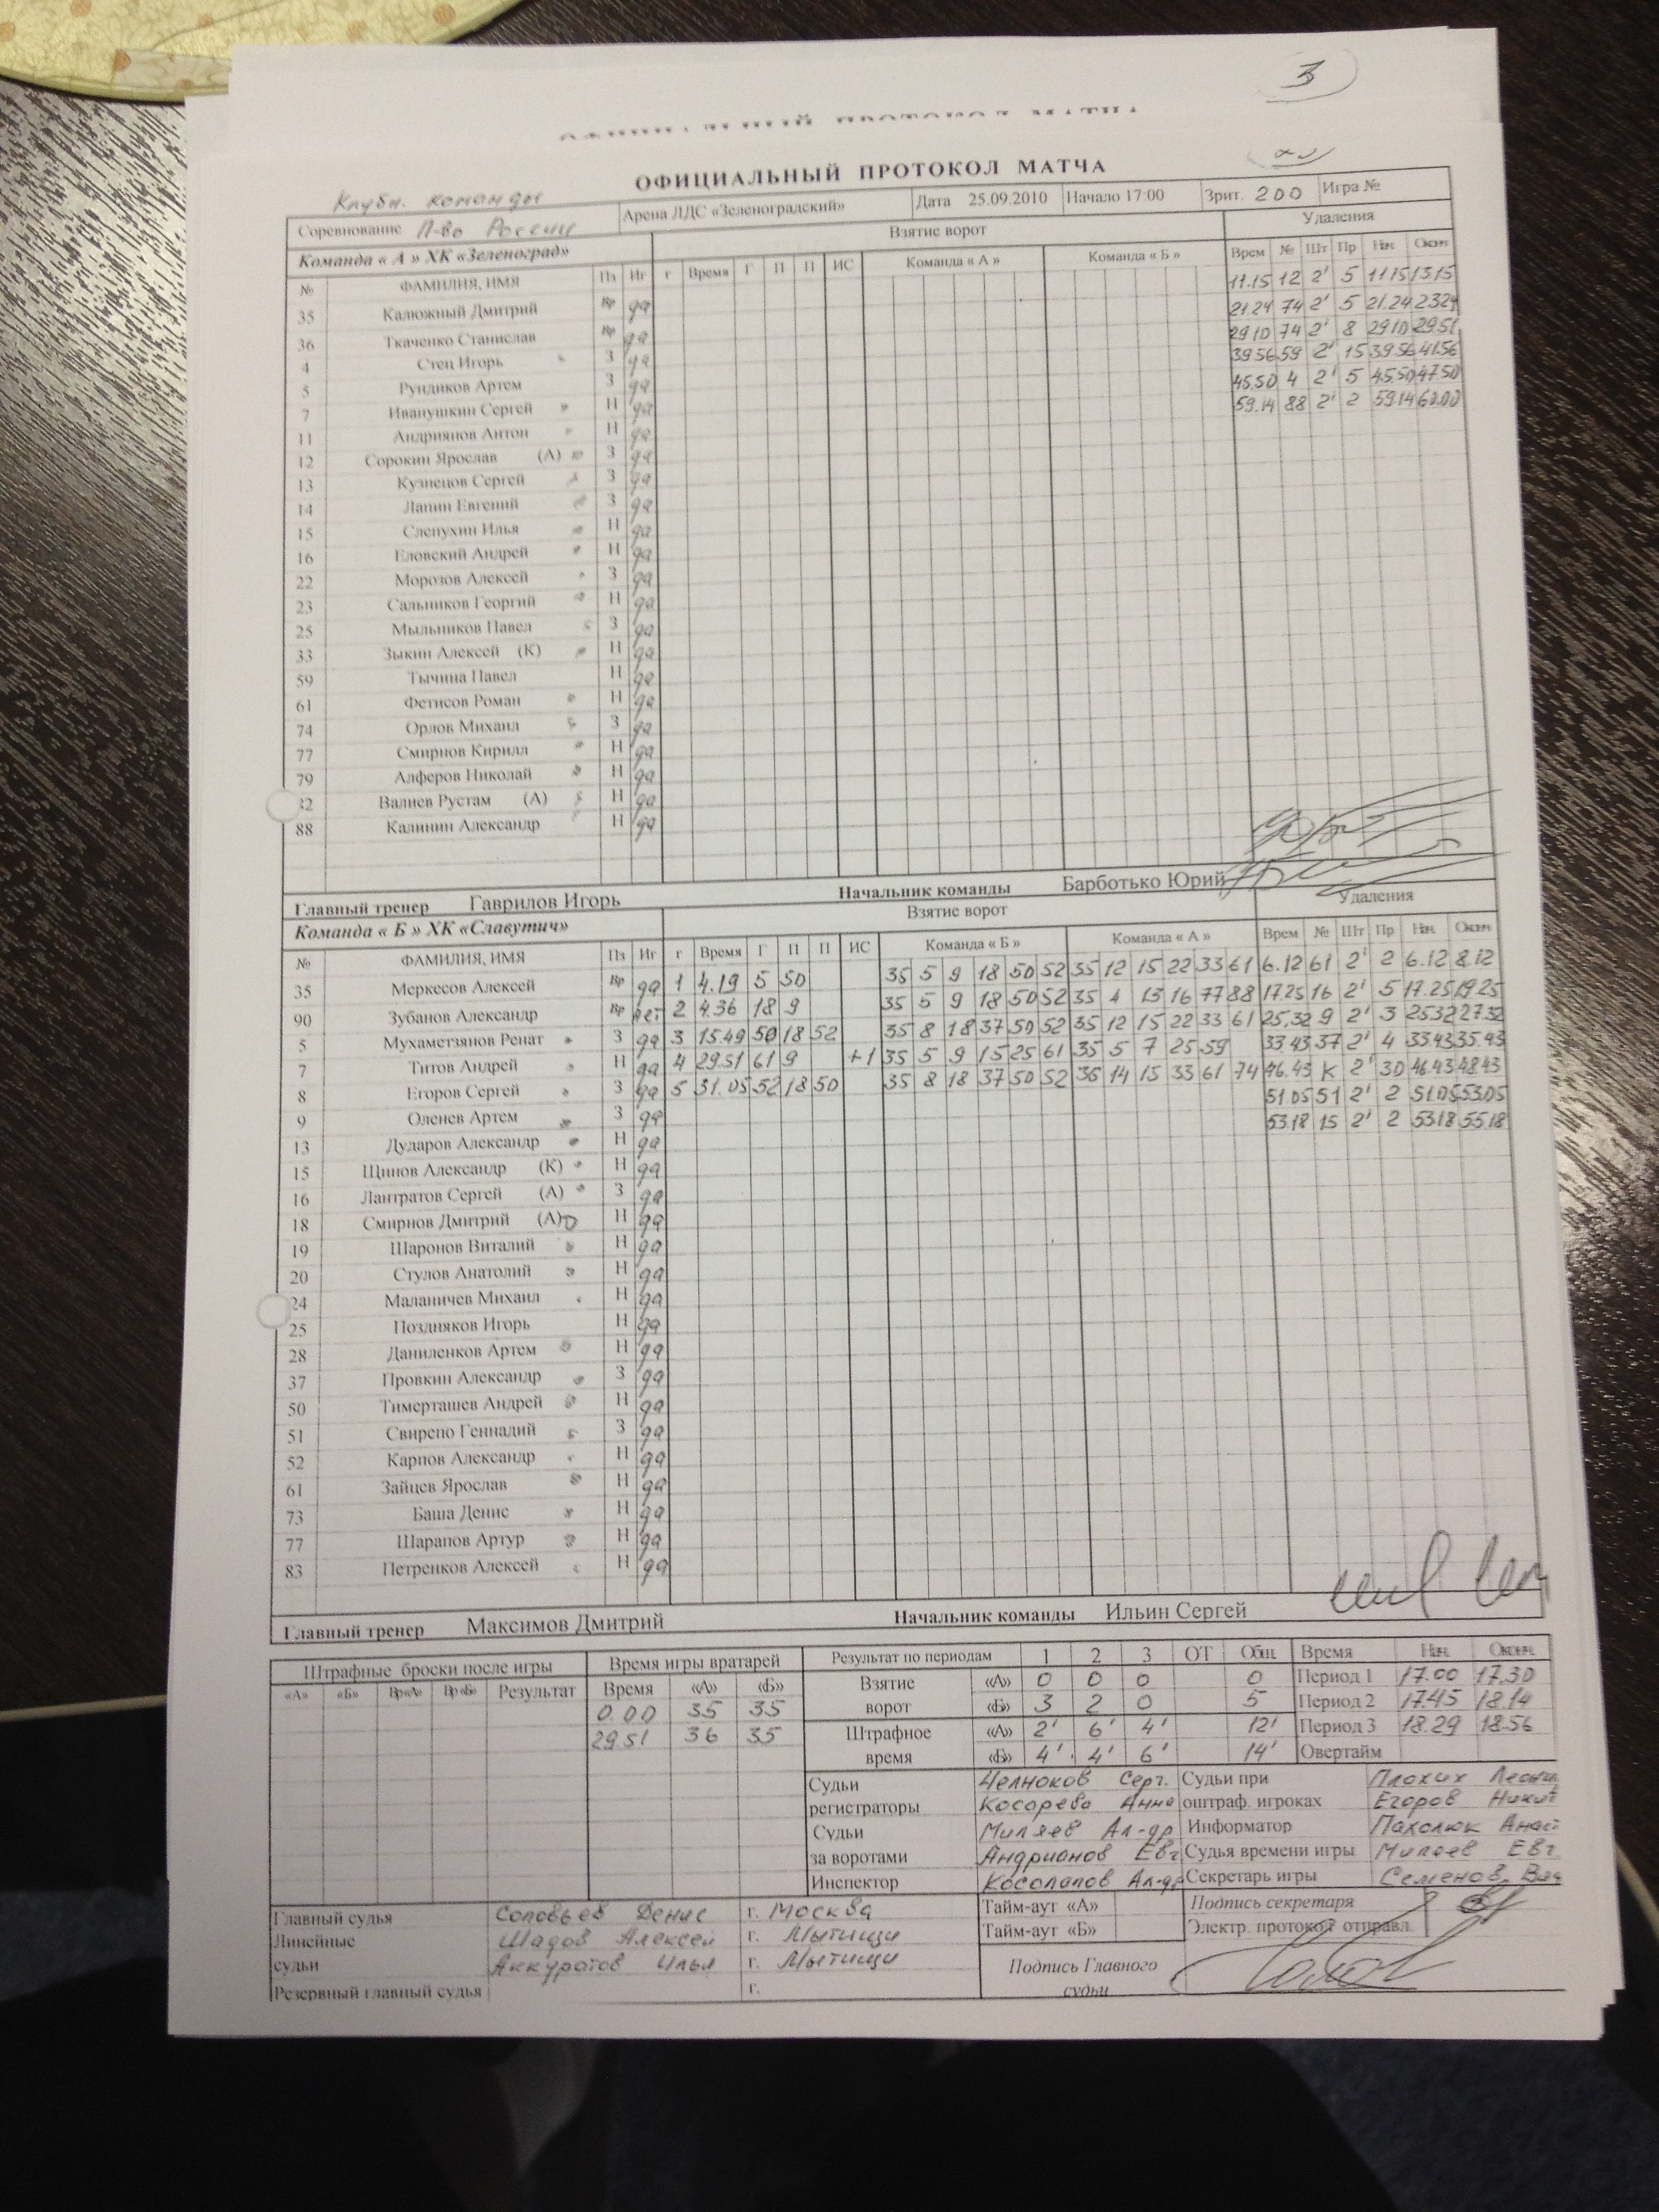 3
ОФИЦИАЛЬНЫЙ ПРОТОКОЛ МАТЧА
ОФИЦИАЛЬНЫЙ ПРОТОКОЛ МАТЧА
Клубн. команды
Соревнование П-во России Арена ЛДС «Зеленоградский» Дата 25.09.2010 Начало 17:00 Зрит. 200 Игра №
Команда « А » ХК «Зеленоград» Взятие ворот Удаления
№ ФАМИЛИЯ, ИМЯ Пз Иг г Время Г П П ИС Команда « А » Команда « Б » Врем № Шт Пр Нач. Оконч.
35 Калюжный Дмитрий Вр да 11.15 12 2' 5 11.15 13.15
36 Ткаченко Станислав Вр да 21.24 74 2' 5 21.24 23.24
4 Стец Игорь З да 29.10 74 2' 8 29.10 29.51
5 Рундиков Артем З да 39.56 59 2' 15 39.56 41.56
7 Иванушкин Сергей Н да 45.50 4 2' 5 45.50 47.50
11 Андриянов Антон Н да 59.14 88 2' 2 59.14 60.00
12 Сорокин Ярослав (А) З да
13 Кузнецов Сергей З да
14 Лапин Евгений З да
15 Слепухин Илья Н да
16 Еловский Андрей Н да
22 Морозов Алексей З да
23 Сальников Георгий Н да
25 Мыльников Павел З да
33 Зыкин Алексей (К) Н да
59 Тычина Павел Н да
61 Фетисов Роман Н да
74 Орлов Михаил З да
77 Смирнов Кирилл Н да
79 Алферов Николай Н да
82 Валиев Рустам (А) Н да
88 Калинин Александр Н да
Главный тренер Гаврилов Игорь Начальник команды Барботько Юрий
Команда « Б » ХК «Славутич» Взятие ворот Удаления
№ ФАМИЛИЯ, ИМЯ Пз Иг г Время Г П П ИС Команда « Б » Команда « А » Врем № Шт Пр Нач. Оконч.
35 Меркесов Алексей Вр да 1 4.19 5 50 35 5 9 18 50 52 35 12 15 22 33 61 6.12 61 2' 2 6.12 8.12
90 Зубанов Александр Вр нет 2 4.36 18 9 35 5 9 18 50 52 35 4 13 16 77 88 17.25 16 2' 5 17.25 19.25
5 Мухаметзянов Ренат З да 3 15.49 50 18 52 35 8 18 37 50 52 35 12 15 22 33 61 25.32 9 2' 3 25.32 27.32
7 Титов Андрей Н да 4 29.51 61 9 +1 35 5 9 15 25 61 35 5 7 25 59 33.43 37 2' 4 33.43 35.43
8 Егоров Сергей З да 5 31.05 52 18 50 35 8 18 37 50 52 36 14 15 33 61 74 46.43 К 2' 30 46.43 48.43
9 Оленев Артем З да 51.05 51 2' 2 51.05 53.05
13 Дударов Александр Н да 53.18 15 2' 2 53.18 55.18
15 Щипов Александр (К) Н да
16 Лантратов Сергей (А) З да
18 Смирнов Дмитрий (А) Н да
19 Шаронов Виталий Н да
20 Стулов Анатолий Н да
24 Маланичев Михаил Н да
25 Поздняков Игорь Н да
28 Даниленков Артем Н да
37 Провкин Александр З да
50 Тимерташев Андрей Н да
51 Свирепо Геннадий З да
52 Карпов Александр Н да
61 Зайцев Ярослав Н да
73 Баша Денис Н да
77 Шарапов Артур Н да
83 Петренков Алексей Н да
Главный тренер Максимов Дмитрий Начальник команды Ильин Сергей
Штрафные броски после игры Время игры вратарей Результат по периодам 1 2 3 ОТ Общ. Время Нач. Оконч.
«А» «Б» Вр«А» Вр«Б» Результат Время «А» «Б» Взятие ворот «А» 0 0 0 0 Период 1 17.00 17.30
0.00 35 35 «Б» 3 2 0 5 Период 2 17.45 18.14
29.51 36 35 Штрафное время «А» 2' 6' 4' 12' Период 3 18.29 18.56
«Б» 4' 4' 6' 14' Овертайм
Судьи Челноков Серг. Судьи при Плохих
регистраторы Косарева Анна оштраф. игроках Егоров Никит
Судьи Миляев Ал-др Информатор Пахолюк
за воротами Андрианов Евг Судья времени игры Миляев Евг
Инспектор Косолапов Ал-др Секретарь игры Семенов
Главный судья Соловьев Денис г. Москва Тайм-аут «А» Подпись секретаря
Линейные Шадов Алексей г. Мытищи Тайм-аут «Б» Электр. протокол отправл.
судьи Аккуратов Илья г. Мытищи Подпись Главного судьи
Резервный главный судья г.